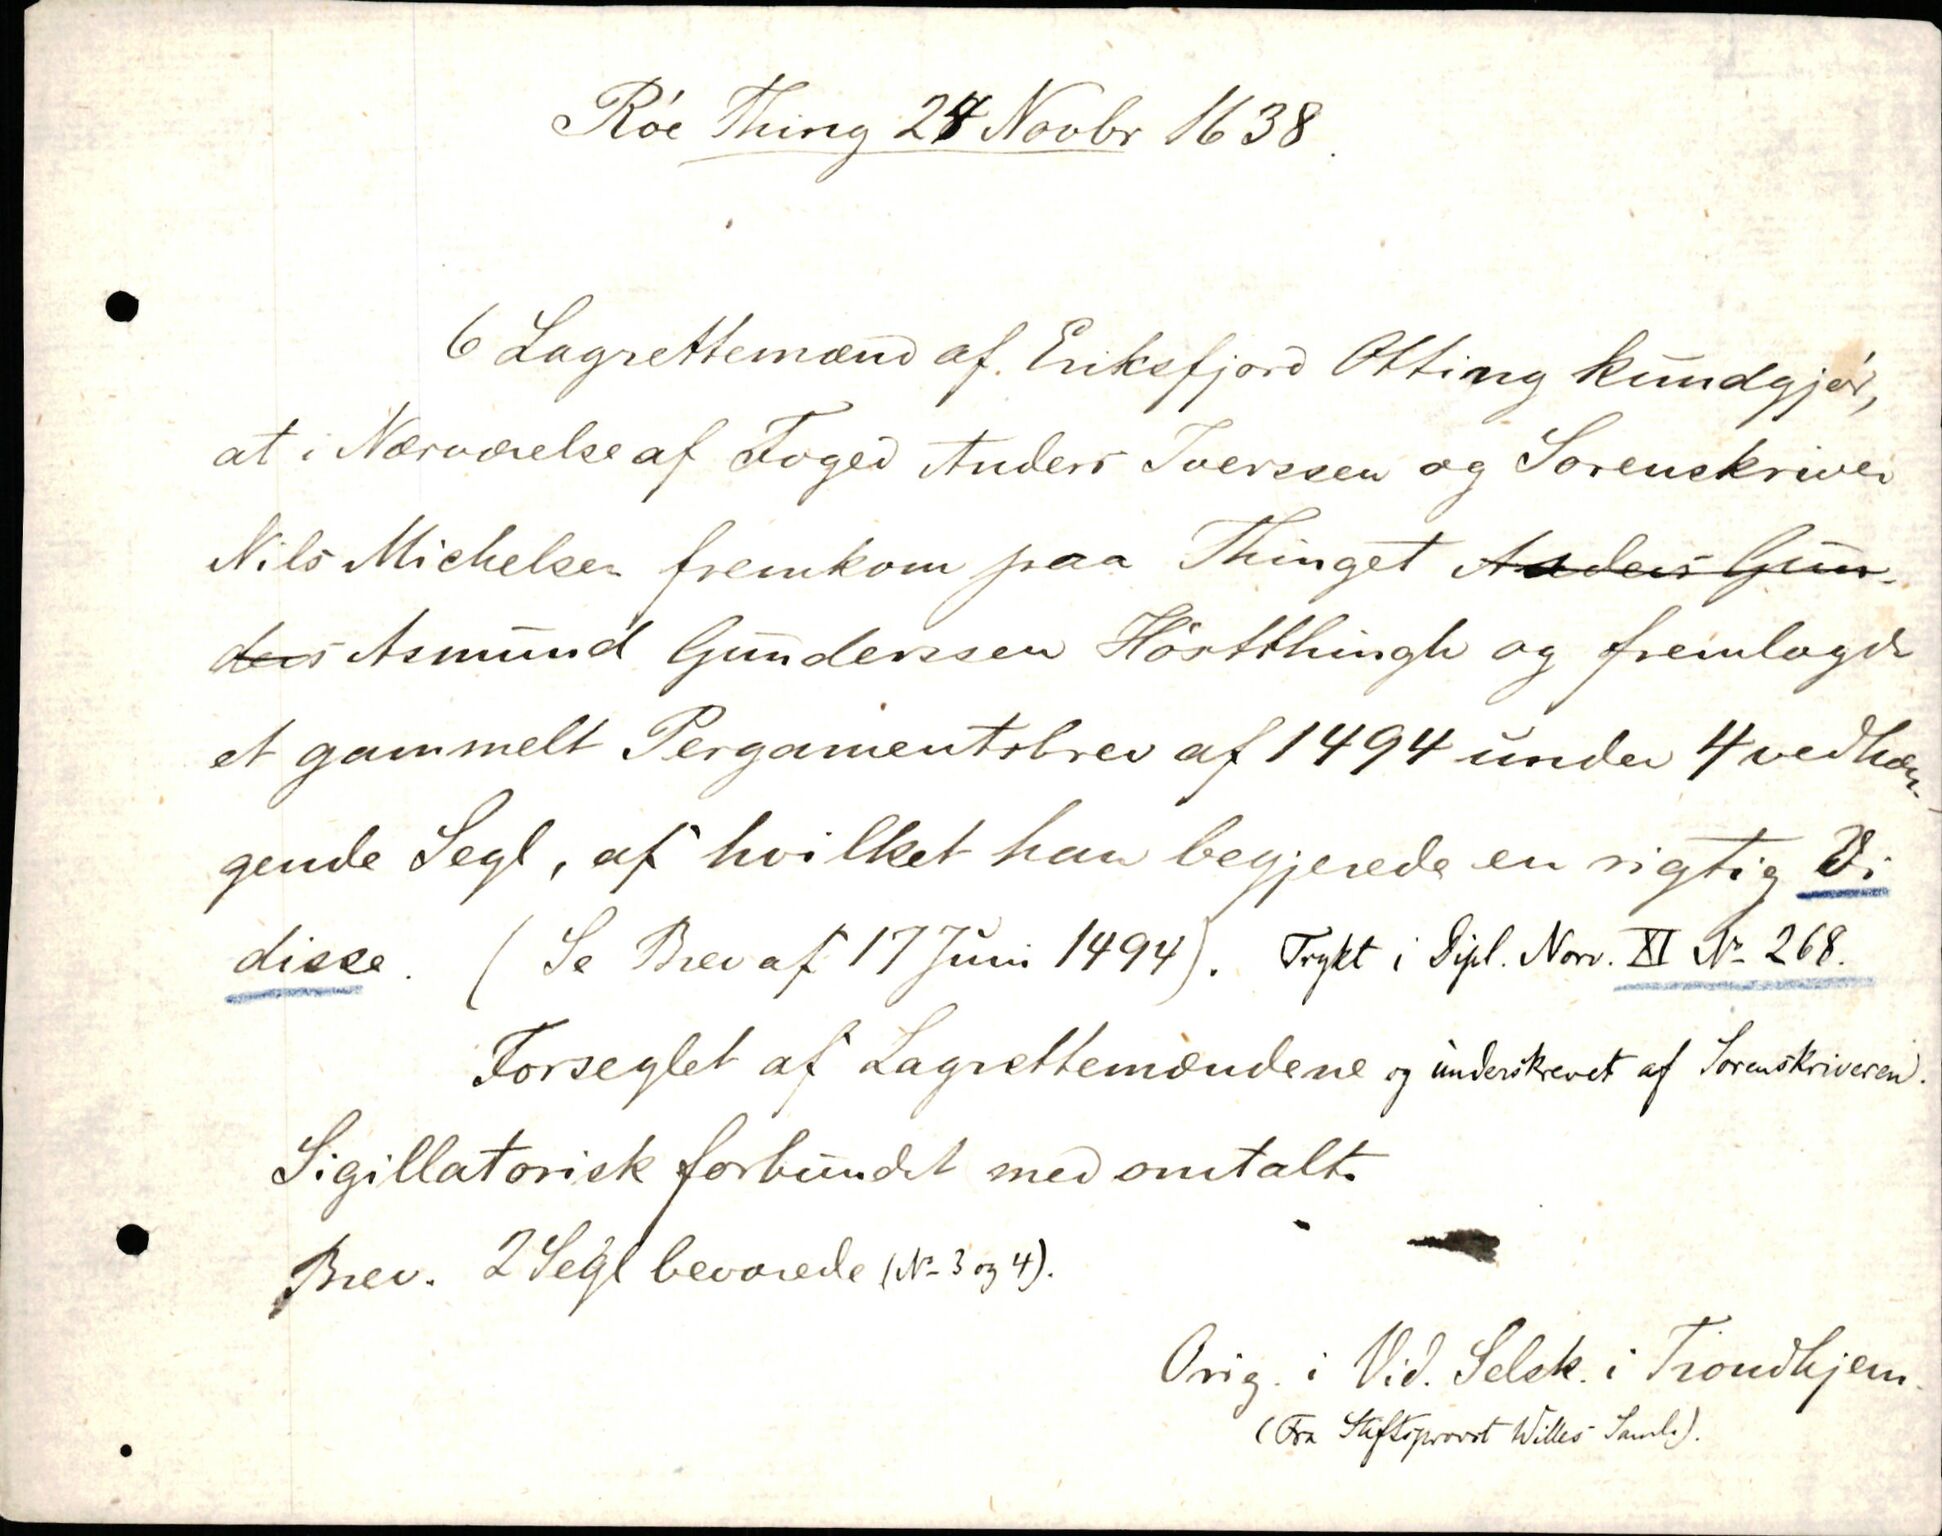 Róe Thing 24 Novbr 1638.
6 Lagrettemænd af Eriksfjord Otting kundgjør,
at i Nærværelse af Foged Anders Iverssen og Sorenskriver
Nils Michelsen fremkom paa Thinget Anders Gun-
ders Asmund Gunderssen Hörtthingh og fremlagde
et gammelt Pergamentsbrev af 1494 under 4 vedhæn-
gende Segl, af hvilket han begjerede en rigtig Vi
disse. (Se Brev af 17 Juni 1494). Trykt i Dipl. Norv. XI No 268.
Forseglet af Lagrettemændene og underskrevet af Sorenskriveren.
Sigillatorisk forbundet med omtalt.
Brev. 2 Segl bevarede (No 3 og 4).
Orig. i Vid. Selsk. i Trondhjem.
(Fra Stiftsprovst Willes Saml.).